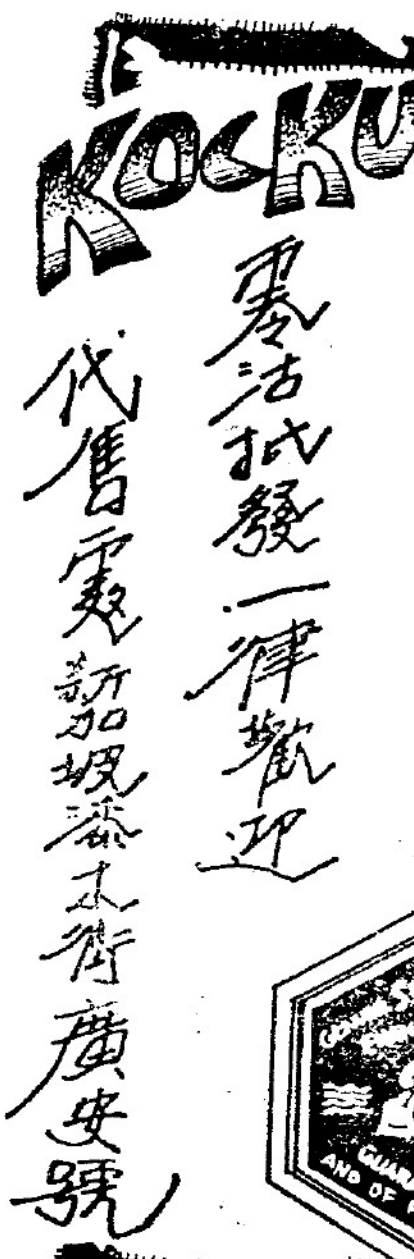 KOCKU
零沽批發一律歡迎
代售處新加坡漆木街廣安號
GUAR
AND OF